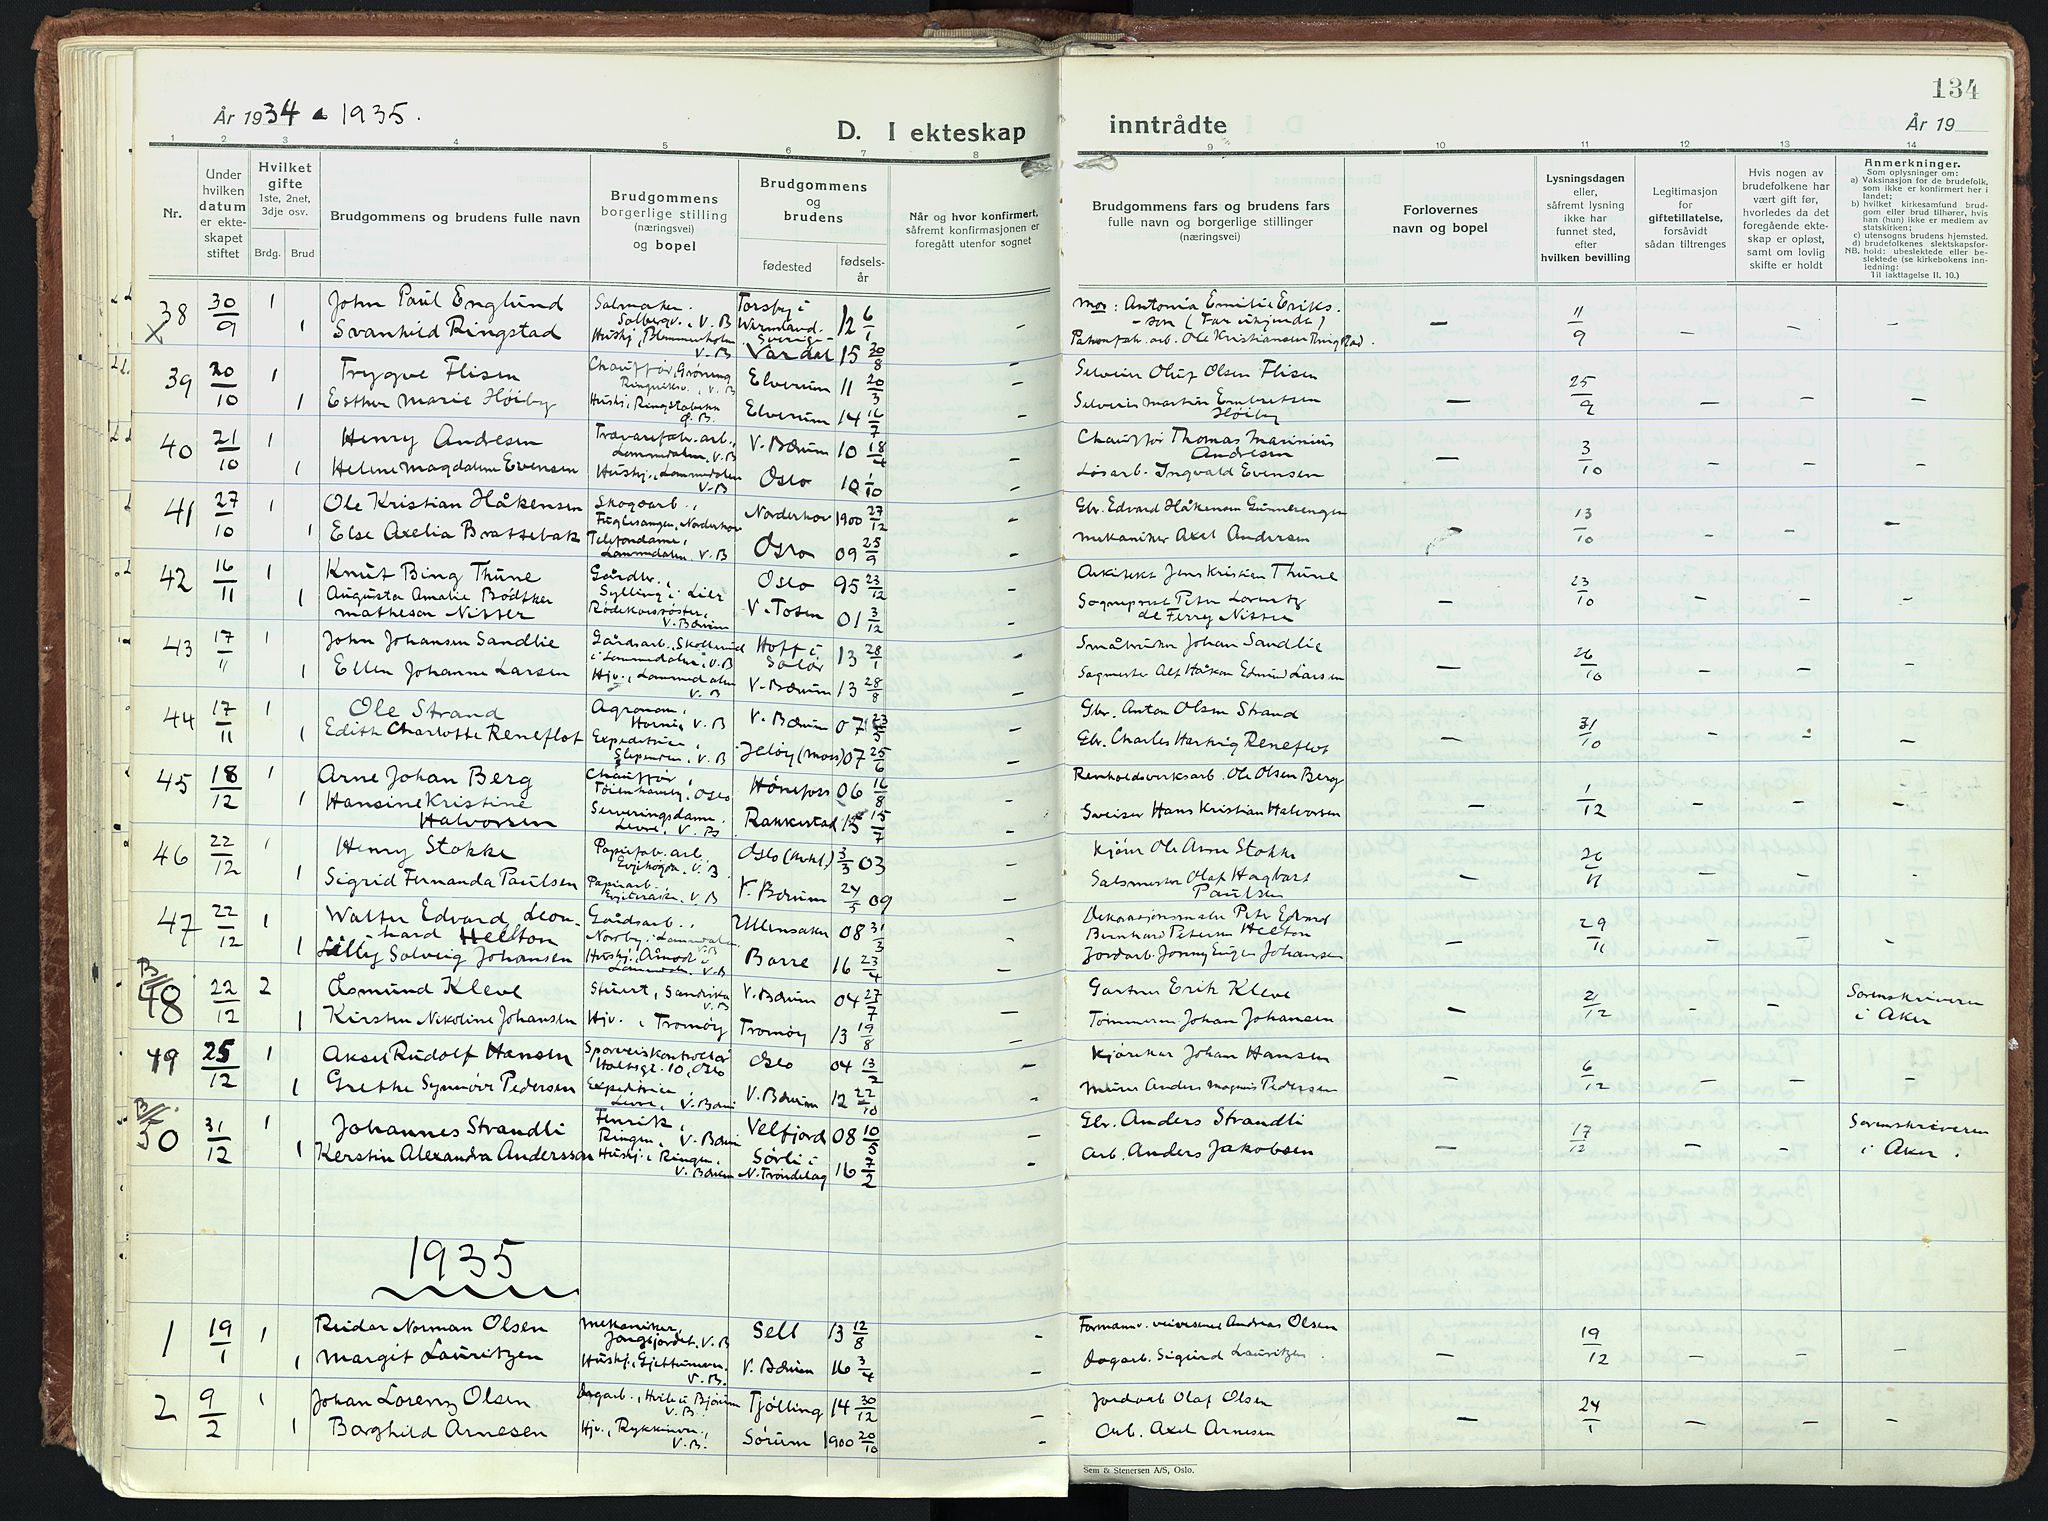 134
År 1934 - 1935.
D. I ekteskap inntrådte
År 19
1 2 3 4 5 6 7 8 9 10 11 12 13 14
Nr.
Under hvilken datum er ekteskapet stiftet
Hvilket gifte 1ste, 2net, 3dje osv.
Brdg. Brud
Brudgommens og brudens fulle navn
Brudgommens borgerlige stilling (næringsvei) og bopel
Brudgommens og brudens
fødested fødselsår
Når og hvor konfirmert, såfremt konfirmasjonen er foregått utenfor sognet
Brudgommens fars og brudens fars fulle navn og borgerlige stillinger (næringsvei)
Forlovernes navn og bopel
Lysningsdagen eller, såfremt lysning ikke har funnet sted, efter hvilken bevilling
Legitimasjon for giftetillatelse, forsåvidt sådan tiltrenges
Hvis nogen av brudefolkene har vært gift før, hvorledes da det foregående ekteskap er opløst, samt om lovlig skifte er holdt
Anmerkninger.
Som oplysninger om:
a) Vaksinasjon for de brudefolk, som ikke er konfirmert her i landet;
b) hvilket kirkesamfund brudgom eller brud tilhører, hvis han (hun) ikke er medlem av statskirken;
c) utensogns brudens hjemsted.
d) brudefolkenes slektskapsforhold: ubeslektede eller beslektede (se kirkebokens innledning:
NB.
Til iakttagelse II. 10.)
38 30/9 1 John Paul Englund Torsby i Wermland. Sverige 12 6/1 Mor: Antonia Emilie Eriks-son (Far ukjendt) 11/9
1 Svanhild Ringstad Vardal 15 30/8 arb. Ole Kristiansen Ringstad.
39 20/10 1 Trygve Flisen Chauffør, V. B Elverum 11 20/3 Selveier Oluf Olsen Flisen 25/9
1 Esther Marie Høiby Elverum 14 16/7 Selveier Martin Embretsen Høiby
40 21/10 1 Henry Andresen Trævarefabr. arb., Lommedalen, V. B V. Bærum 10 18/4 Chauffør Thomas Marinius Andresen 3/10
1 Helene Magdalene Evensen Hushj., Lommedalen V. B Oslo 10 1/10 Løsarb. Ingvald Evensen
41 27/10 1 Ole Kristian Håkensen Skogsarb., Fuglesangen, Norderhov Norderhov 1900 27/12 Gbr. Edvard Håkensen Gunnerengen 13/10
1 Else Axelia Brattebak Telefondame, Lommedalen. V. B Oslo 09 25/9 Mekaniker Axel Andersen
42 16/11 1 Knut Bing Thune Gårdbr., Sylling i Lier Oslo 95 23/12 Arkitekt Jens Kristian Thune 23/10
1 Augusta Amalie Bødtker Matheson Nisser V. Bærum V. Toten 01 3/12 Sogneprest Peter Lorentz de Ferry Nisser
43 17/11 1 John Johansen Sandlie Gårdsarb., i Lommedalen, V. B Hoff i Solør 13 28/1 Småbruker Johan Sandlie 26/10
1 Ellen Johanne Larsen Hjv., Lommedalen V. B V. Bærum 13 28/8 Sagmester Alf Håkon Edmund Larsen
44 17/11 1 Ole Strand Agronom, Hornie, V. B V. Bærum 07 Gbr. Anton Olsen Strand 31/10
1 Edith Charlotte Reneflot Expeditrice, Slependen, V. B Jeløy (Moss) 07 25/6 Gbr. Charles Hartvig Reneflot
45 18/12 1 Arne Johan Berg Chauffør, Oslo Hønefoss 06 16/8 Renholdsverksarb. Ole Olsen Berg 1/12
1 Hansine Kristine Halvorsen Serveringsdame. Levre, V. B Rakkestad 15/7 Sveiser Hans Kristian Halvorsen
46 22/12 1 Henry Stokke Papirfab. arb. V. B Oslo 3/3 03 Kjører Ole Arne Stokke 26/11
1 Sigrid Fernanda Paulsen Papirarb. V. B V. Bærum 24/5 09 Salsmester Olaf Hagbart Paulsen
47 22/12 1 Walter Edvard Leonhard Helton Gårdsarb., Norby i Lommedalen, V. B Ullensaker 08 31/3 Dekorasjonsmaler Peter Edvard Bernhard Petersen Helton 29/11
1 Lilly Solveig Johansen Hushj. Åmot i Lommedalen. V. B Borre 16 23/4 Jordarb. Jonny Eugen Johansen
B 48 22/12 2 Åsmund Kleve Stuert, Sandvika V. B V. Bærum 04 27/7 Gartner Erik Kleve 2/12 Sorenskriveren i Aker
1 Kirsten Nikoline Johansen Hjv., Tromøy Tromøy 13 19/8 Tømmerm. Johan Johansen
49 25/12 1 Aksel Rudolf Hansen Sporveiskontrollør Holtsgt. 10, Oslo Oslo 04 13/2 Kjørekar Johan Hansen 6/12
1 Grethe Synnøve Pedersen Expeditrice, Levre, V. Bærum V. Bærum 12 22/10 Murer Anders Magnus Pedersen
B 50 31/12 1 Johannes Strandli Fenrik, Ringen, V. Bærum Velfjord 08 10/5 Gbr. Anders Strandli 17/12 Sorenskriveren i Aker.
1 Kerstin Alexandra Andersson Hushj. i Ringen, V. Bærum Sørli i N. Trøndelag 16 7/2 Arb. Anders Jakobsen
1935
1 19/1 1 Reidar Norman Olsen Mekaniker, Jongsjordet, V. B Sell 13 12/8 Formann v. veivesenet Andreas Olsen 19/12
1 Margit Lauritzen Hushj., Gjettumvn. V. B. V. Bærum 16 3/4 Dagarb. Sigurd Lauritzen.
2 9/2 1 Johan Lorenz Olsen Dagarb., V. B. Tjølling 14 30/12 Jordarb Olaf Olsen 24/1
1 Borghild Arnesen Hjv., Rykkinvn., V. B. Sørum 1900 20/10 Arb. Axel Arnesen
Sem & Stenersen A/S, Oslo.